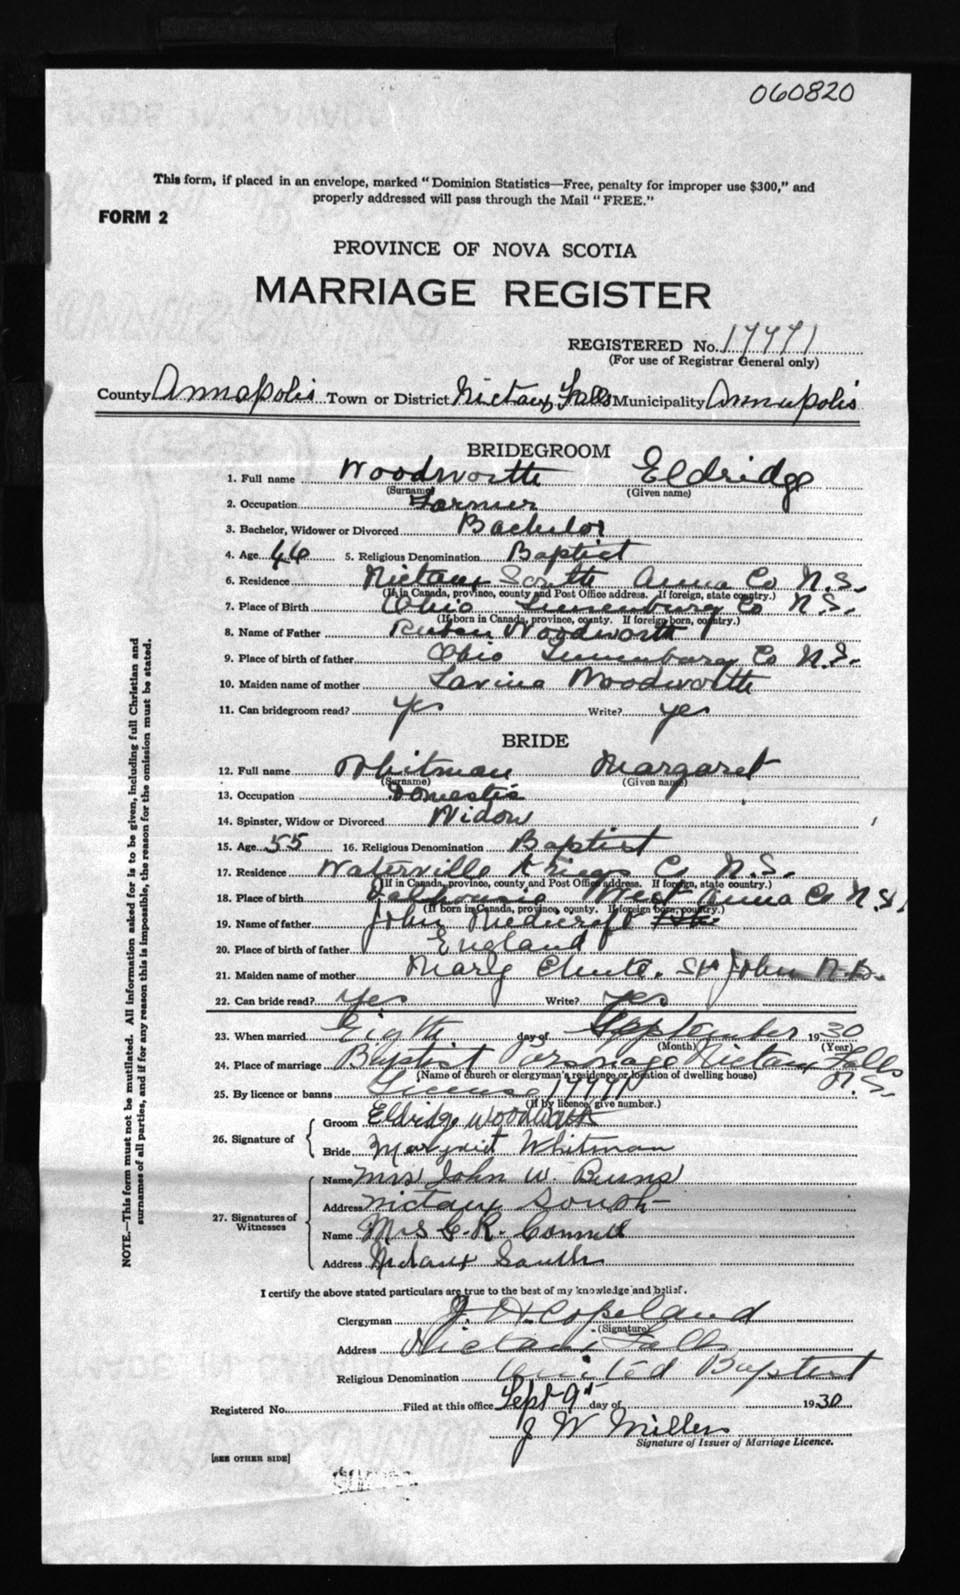 060820
This form, if placed in an envelope, marked "Dominion Statistics—Free, penalty for improper use $300," and
properly addressed will pass through the Mail "FREE."
FORM 2
PROVINCE OF NOVA SCOTIA
MARRIAGE REGISTER
REGISTERED No. 17771
(For use of Registrar General only)
County Annapolis Town or District Nictaux Falls Municipality Annapolis
BRIDEGROOM
1. Full name Woodworth Eldridge
(Surname) (Given name)
2. Occupation Farmer
3. Bachelor, Widower or Divorced Bachelor
4. Age 46 5. Religious Denomination Baptist
6. Residence Nictaux South Anna Co N.S.
(If in Canada, province, county and Post Office address. If foreign, state country.)
7. Place of Birth Ohio Lunenburg Co N.S.
(If born in Canada, province, county. If foreign born, country.)
8. Name of Father Ruben Woodworth
9. Place of birth of father Ohio Lunenburg Co N.S.
10. Maiden name of mother Lavina Woodworth
11. Can bridegroom read? yes Write? yes
BRIDE
12. Full name Whitman Margaret
(Surname) (Given name)
13. Occupation Domestic
14. Spinster, Widow or Divorced Widow
15. Age 55 16. Religious Denomination Baptist
17. Residence Waterville Kings Co N.S.
(If in Canada, province, county and Post Office address. If foreign, state country.)
18. Place of birth Dalhousie West Anna Co N.S.
(If born in Canada, province, county. If foreign born, country.)
19. Name of father John
20. Place of birth of father England
21. Maiden name of mother Mary Chute. St John N.B.
22. Can bride read? Yes Write? Yes
23. When married Eigth day of September 1930
(Month) (Year)
24. Place of marriage Baptist Parsonage Nictaux Falls
(Name of church or clergyman's residence or location of dwelling house) N.S.
25. By licence or banns License 17771
(If by licence, give number.)
26. Signature of
Groom Eldridge Woodworth
Bride Margaret Whitman
27. Signatures of Witnesses
Name Mrs John W. Burns
Address Nictaux South
Name Mrs C. R. Connell
Address Nictaux South
I certify the above stated particulars are true to the best of my knowledge and belief.
Clergyman J. H. Copeland
(Signature)
Address Nictaux Falls
Religious Denomination United Baptist
Registered No. Filed at this office Sept 9th day of 1930
J W Miller
Signature of Issuer of Marriage Licence.
[SEE OTHER SIDE]
NOTE.—This form must not be mutilated. All information asked for is to be given, including full Christian and
surnames of all parties, and if for any reason this is impossible, the reason for the omission must be stated.